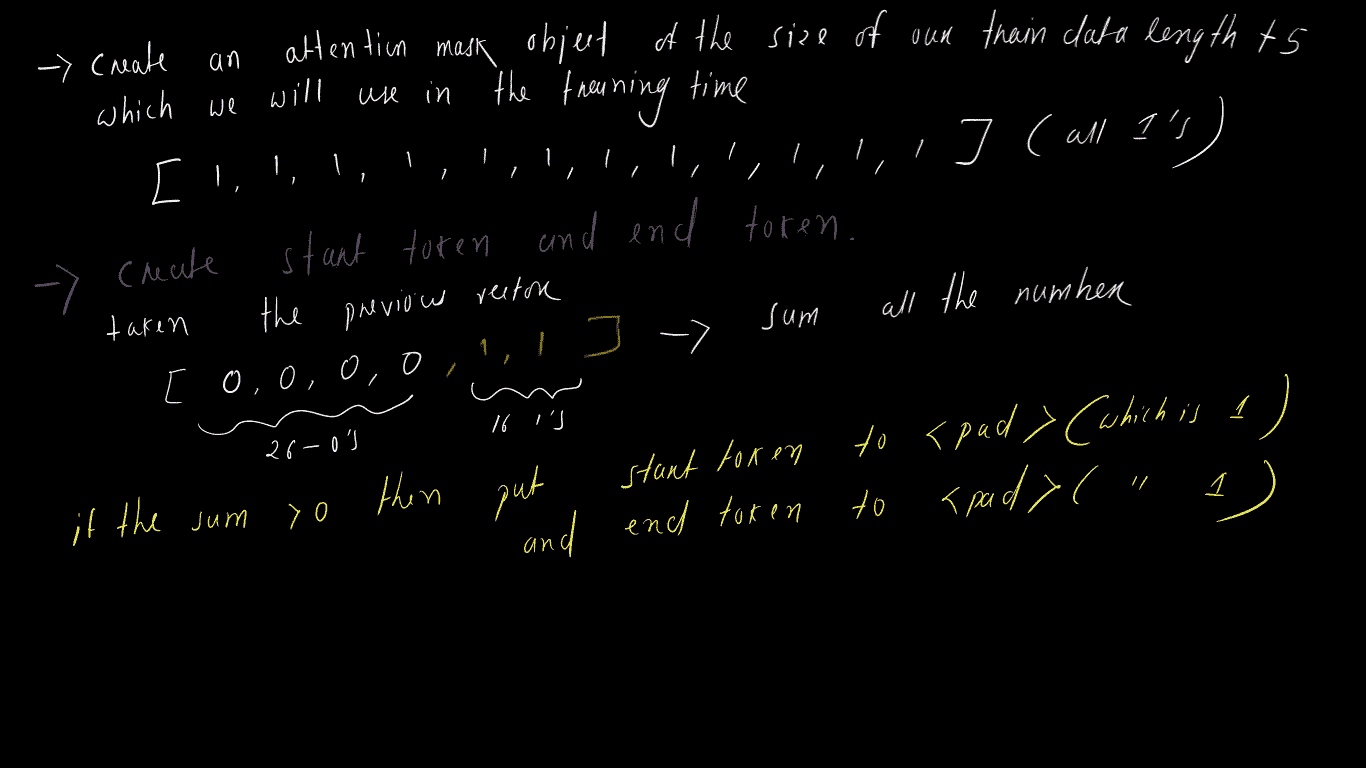 → create an attention mask object of the size of our train data length +5
which we will use in the training time
[ 1, 1, 1, 1, 1, 1, 1, 1, 1, 1, 1, 1 ] (all 1's)
→ create start token and end token.
taken the previous vector
[ 0, 0, 0, 0, 1, 1 ] → sum all the number
26-0's 16 1's
if the sum > 0 then put start token to <pad> (which is 1)
and end token to <pad> ( " 1 )